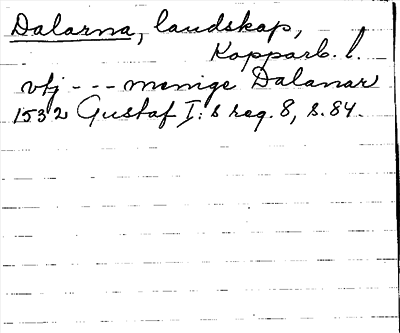 Dalarna, landskap,
Kopparb. l.
vtj --- menige Dalanar
1532 Gustaf I:s reg. 8, s. 84.